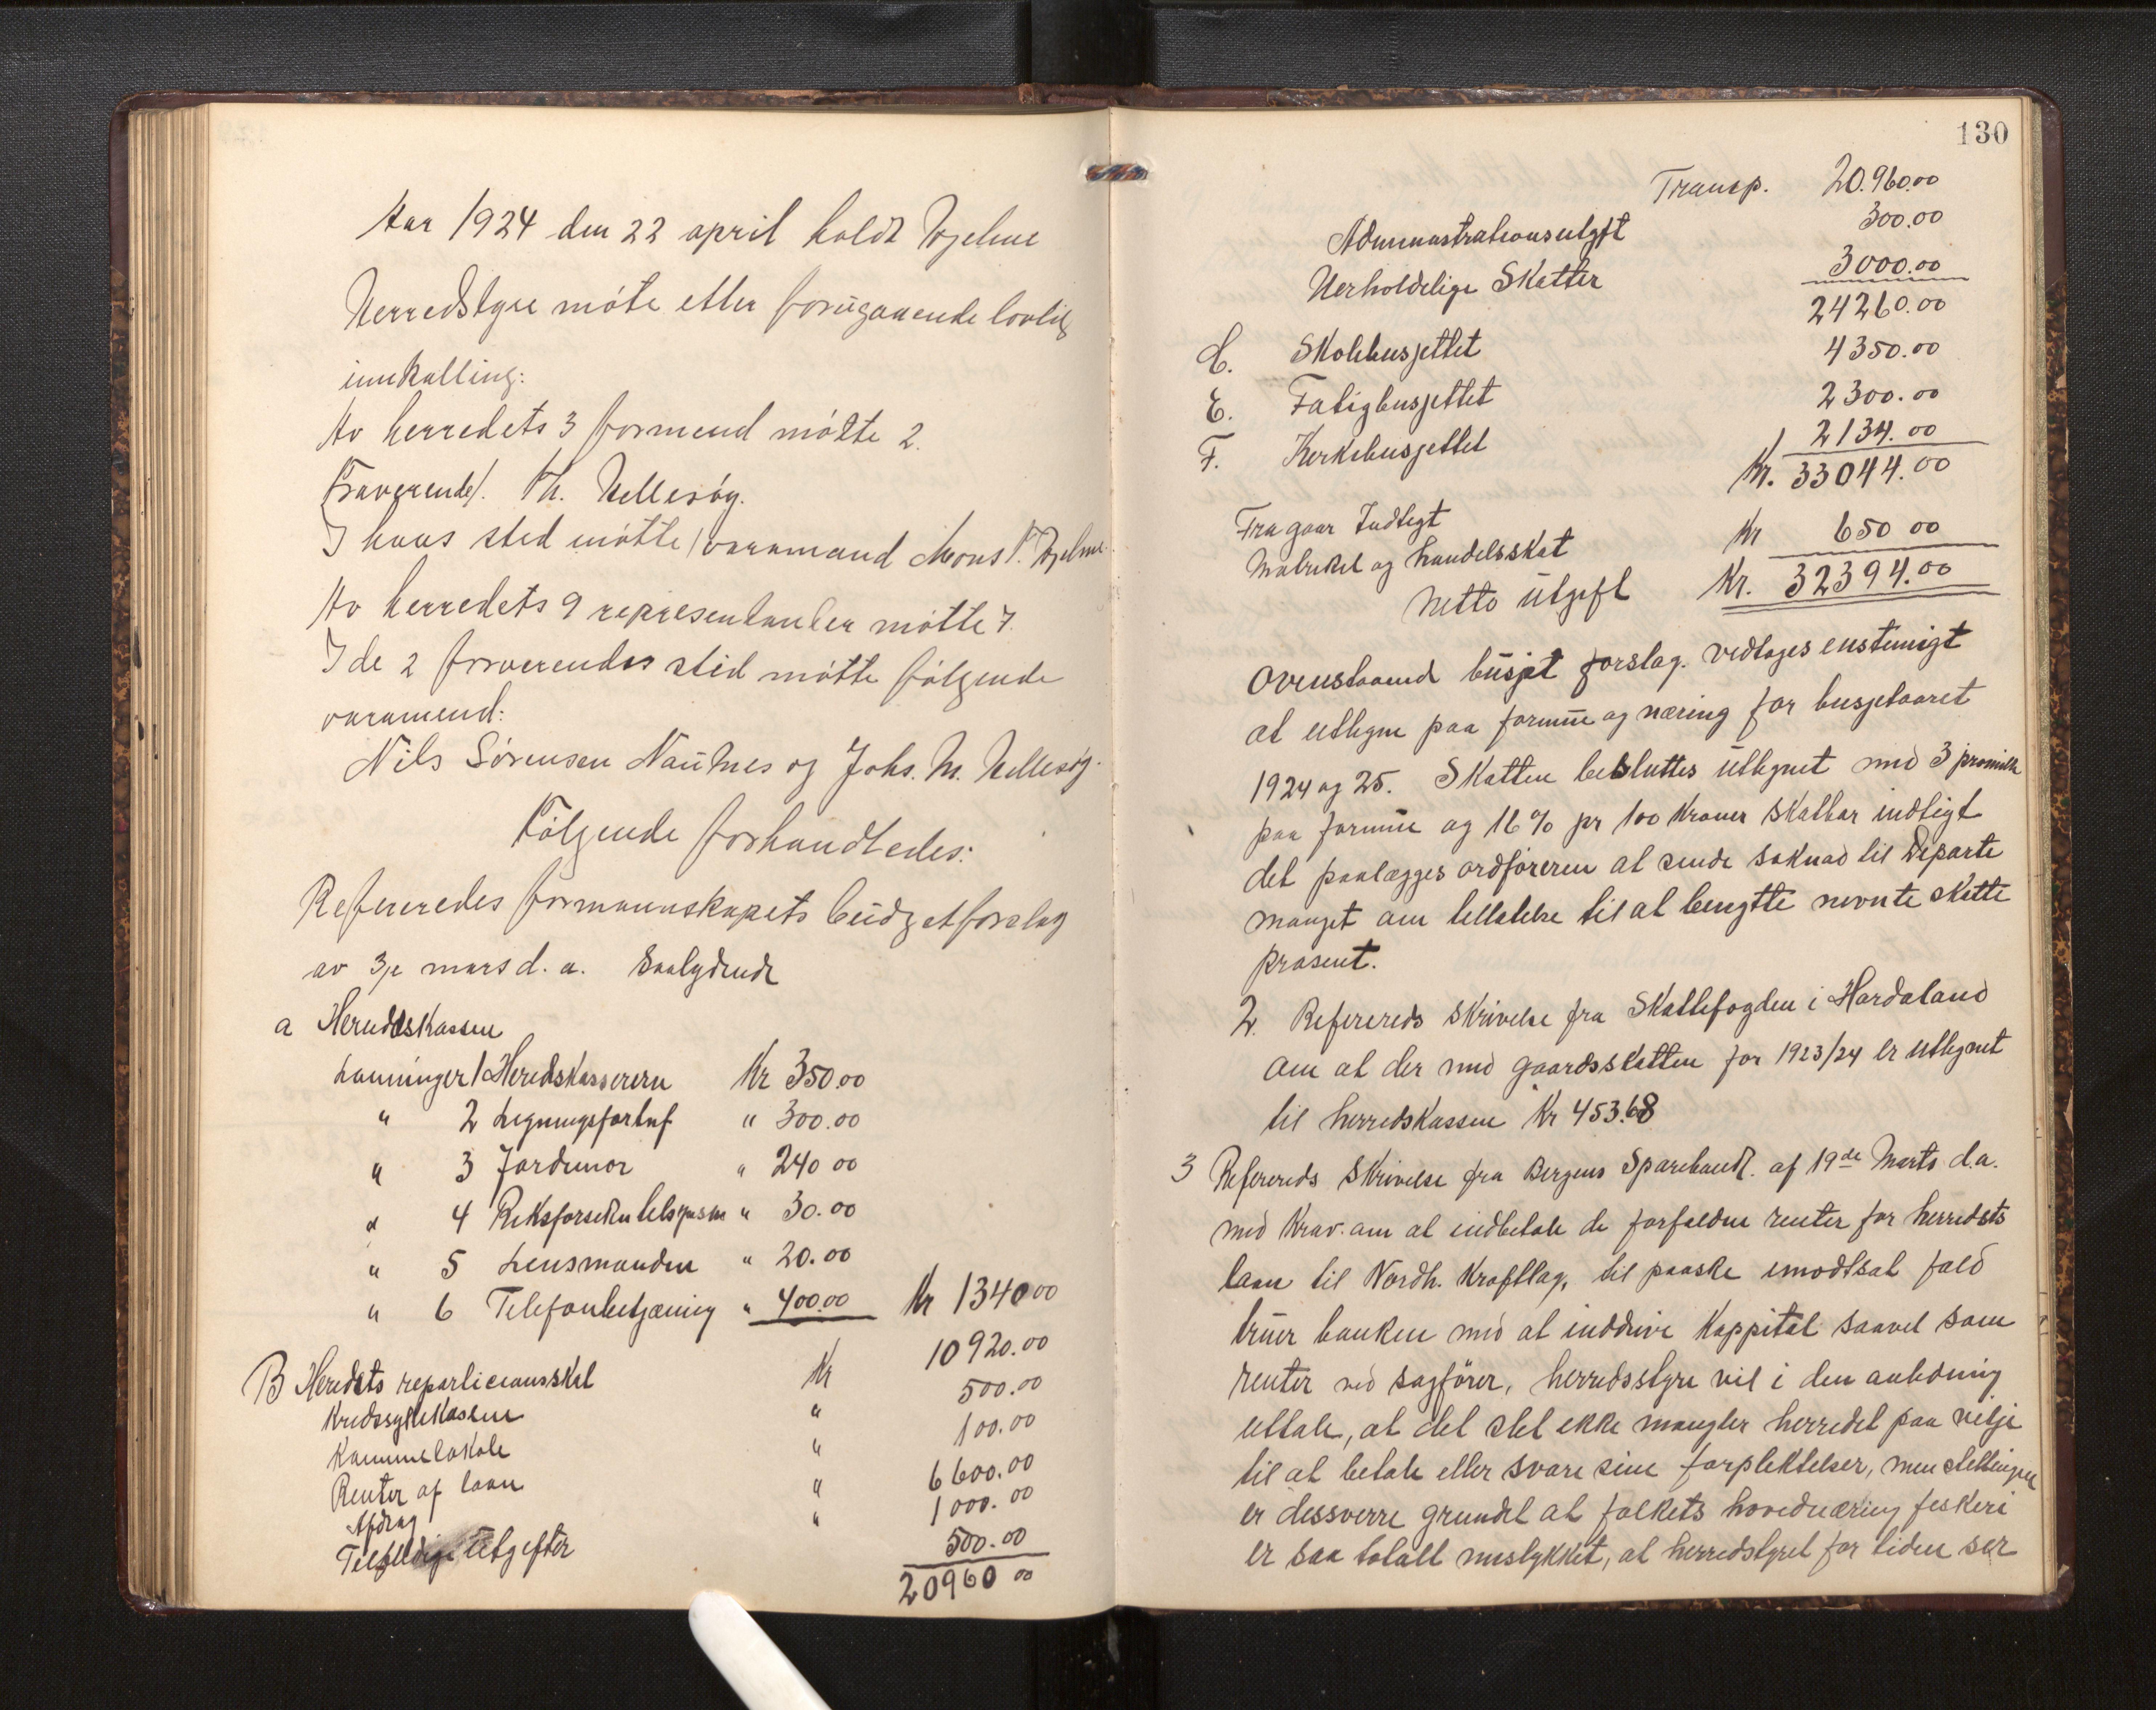 Aar 1924 den 22 april holdt Hjelme
Herredstyre møte etter forugaaende lovlig
innkalling:
Av herredets 3 formend møtte 2.
Fraverende/. Th. Hellesøy.
I hans sted møtte varamand Mons T. Hjelme.
Av herredets 9 representanter møtte 7.
I de 2 fraverendes sted møtte følgende
varamend:
Nils Sørensen Nautnes og Johs. M. Hellesøy.
Følgende forhandledes:
Refereredes formannskapets budgetforslag
av 3je mars d. a. Saalydende
a Heredskassen
Lønninger 1 Heredskassereren Kr 350.00
" 2 Legningsforhnf " 300.00
" 3 Jordemor " 240 00
" 4 " 30.00
" 5 Lensmanden " 20.00
" 6 Telefonbetjæning " 400.00 Kr 1340 00
B Heredets reparticionsskat Kr 10920.00
Kredssykekassene " 500.00
Kommunelokale " 100.00
Renter af laan " 6600.00
Afdrag " 1000.00
Tilfeldige Utgifter 500.00
20960 00
130
Transp. 20.960.00
Administrationsutgift 300.00
Uerholdelige Skatter 3000.00
24260.00
C. Skolebusjettet 4350.00
E. Fatigbusjettet 2300.00
F. Kerkebusjettet 2134.00
Kr. 33044.00
Fra gaar Indtegt
Matrikel og handelsskat Kr 650 00
Netto utgift Kr. 32394.00
Ovenstaaend busjet forslag. vedtages enstemigt
at utlegne paa formue og næring for busjetaaret
1924 og 25. Skatten besluttes utlegnet med 3 promille
paa formue og 16% pr 100 Kroner skatbar indtegt
det paalægges ordføreren at sende søknad til Departe
manget om tellatelse til at benytte nevnte skatte
prosent.
2. Refereredes Skrivelse fra Skattefogden i Hordaland
om at der med gaardsskatten for 1923/24 er utlegnet
til herredskassen Kr 453.68
3 Refereredes Skrivelse fra Bergens Sparebank. af 19de Marts d.a.
med Krav. om at indbetale de forfaldne renter for herredets
laan til Nordh. Kraftlag, til paaske imodtsat fald
truer banken med at inddrive Kappital saavel som
renter ved sagfører, herredsstyre vil i den anledning
uttale, at det slet ekke mangler herredet paa velje
til at betale eller svare sine forplektelser, men stellingen
er dessverre grundet at folkets hovednæring feskeri
er saa totalt meslykket, at herredstyret for tiden ser